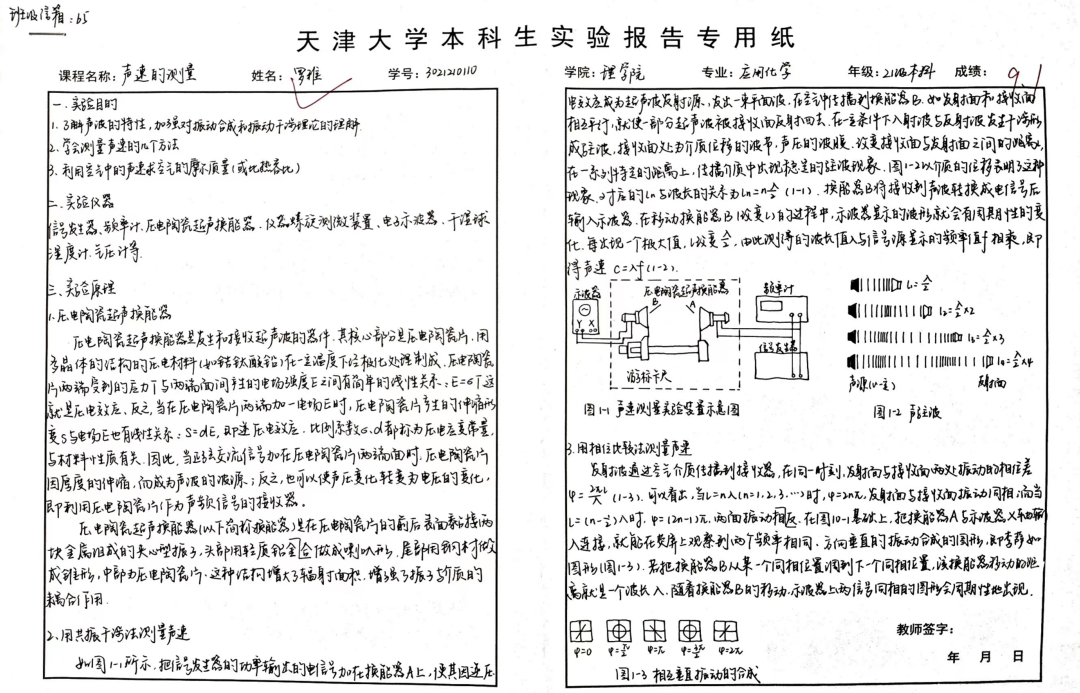 班级信箱:65
天津大学本科生实验报告专用纸
课程名称:声速的测量 姓名: 学号:3021210110
一.实验目的
1.了解声波的特性,加强对振动合成和振动干涉理论的理解
2.学会测量声速的几个方法
3.利用空气中的声速求空气的摩尔质量(或比热容比)
二.实验仪器
信号发生器、频率计、压电陶瓷超声换能器、仪器螺旋测微装置、电子示波器、干湿球
温度计、气压计等.
三.实验原理
1.压电陶瓷超声换能器
压电陶瓷超声换能器是发生和接收超声波的器件,其核心部分是压电陶瓷片,用
多晶体的结构的压电材料(如锆钛酸铅)在一定温度下经极化处理制成.压电陶瓷
片两端受到的应力T与两端面间产生的电场强度E之间有简单的线性关系:E=σT,这
就是压电效应、反之,当在压电陶瓷片两端加一电场E时,压电陶瓷片产生的伸缩形
变S与电场E也有线性关系:S=dE,即逆压电效应.比例系数σ、d都称为压电应变常量,
与材料性质有关.因此,当正弦交流信号加在压电陶瓷片两端面时,压电陶瓷片
因厚度的伸缩,而成为声波的波源;反之,也可以使声压变化转变为电压的变化,
即利用压电陶瓷片作为声频信号的接收器.
压电陶瓷超声换能器(以下简称换能器)是在压电陶瓷片的前后表面黏接两
块金属组成的夹心型振子,头部用轻质铝合金做成喇叭形,尾部用钢材做
成锥形,中部为压电陶瓷片.这种结构增大了辐射面积,增强了振子与介质的
耦合作用.
2.用共振干涉法测量声速
如图1-1所示,把信号发生器的功率输出的电信号加在换能器A上,使其因逆压
学院:理学院 专业:应用化学 年级:21级本科 成绩:91
电效应成为超声波发射源,发出一束平面波,在空气中传播到换能器B.如发射面和接收面
相互平行,就使一部分超声波被接收面反射回去.在一定条件下入射波与反射波发生干涉形
成驻波,接收面处为介质位移的波节,声压的波腹.改变接收面与发射面之间的距离L,
在一系列特定的距离上,传播介质中出现稳定的驻波现象.图1-2以介质的位移表明了这种
现象.对应的Ln与波长的关系为Ln=nλ/2 (1-1).换能器B将接收到声波转换成电信号后
输入示波器.在移动换能器B(改变L)的过程中,示波器显示的波形就会有周期性的变
化.每出现一个极大值,L改变λ/2,由此测得的波长值λ与信号源显示的频率值f相乘,即
得声速 C=λf (1-2).
示波器
压电陶瓷超声换能器
频率计
B A
Y X
信号发生器
游标卡尺
图1-1 声速测量实验装置示意图
l₁=λ/2
l₂=λ/2×2
l₃=λ/2×3
l₄=λ/2×4
反射面
图1-2 声驻波
3.用相位比较法测量声速
发射波通过空气介质传播到接收器,在同一时刻,发射面与接收面两处振动的相位差
φ=2πL/λ (1-3).可以看出,当L=nλ(n=1,2,3,…)时,φ=2nπ,发射面与接收面振动同相;而当
L=(n-1/2)λ时,φ=(2n-1)π,两面振动相反.在图10-1基础上,把换能器A与示波器X轴输
入连接,就能在荧屏上观察到两个频率相同、方向垂直的振动合成的图形,即李萨如
图形(图1-3).若把换能器B从某一个同相位置调到下一个同相位置,该换能器移动的距
离就是一个波长λ.随着换能器B的移动,示波器上两信号同相的图形会周期性地出现.
φ=0 φ=π/2 φ=π φ=3π/2 φ=2π
图1-3 相互垂直振动的合成
教师签字:
年 月 日